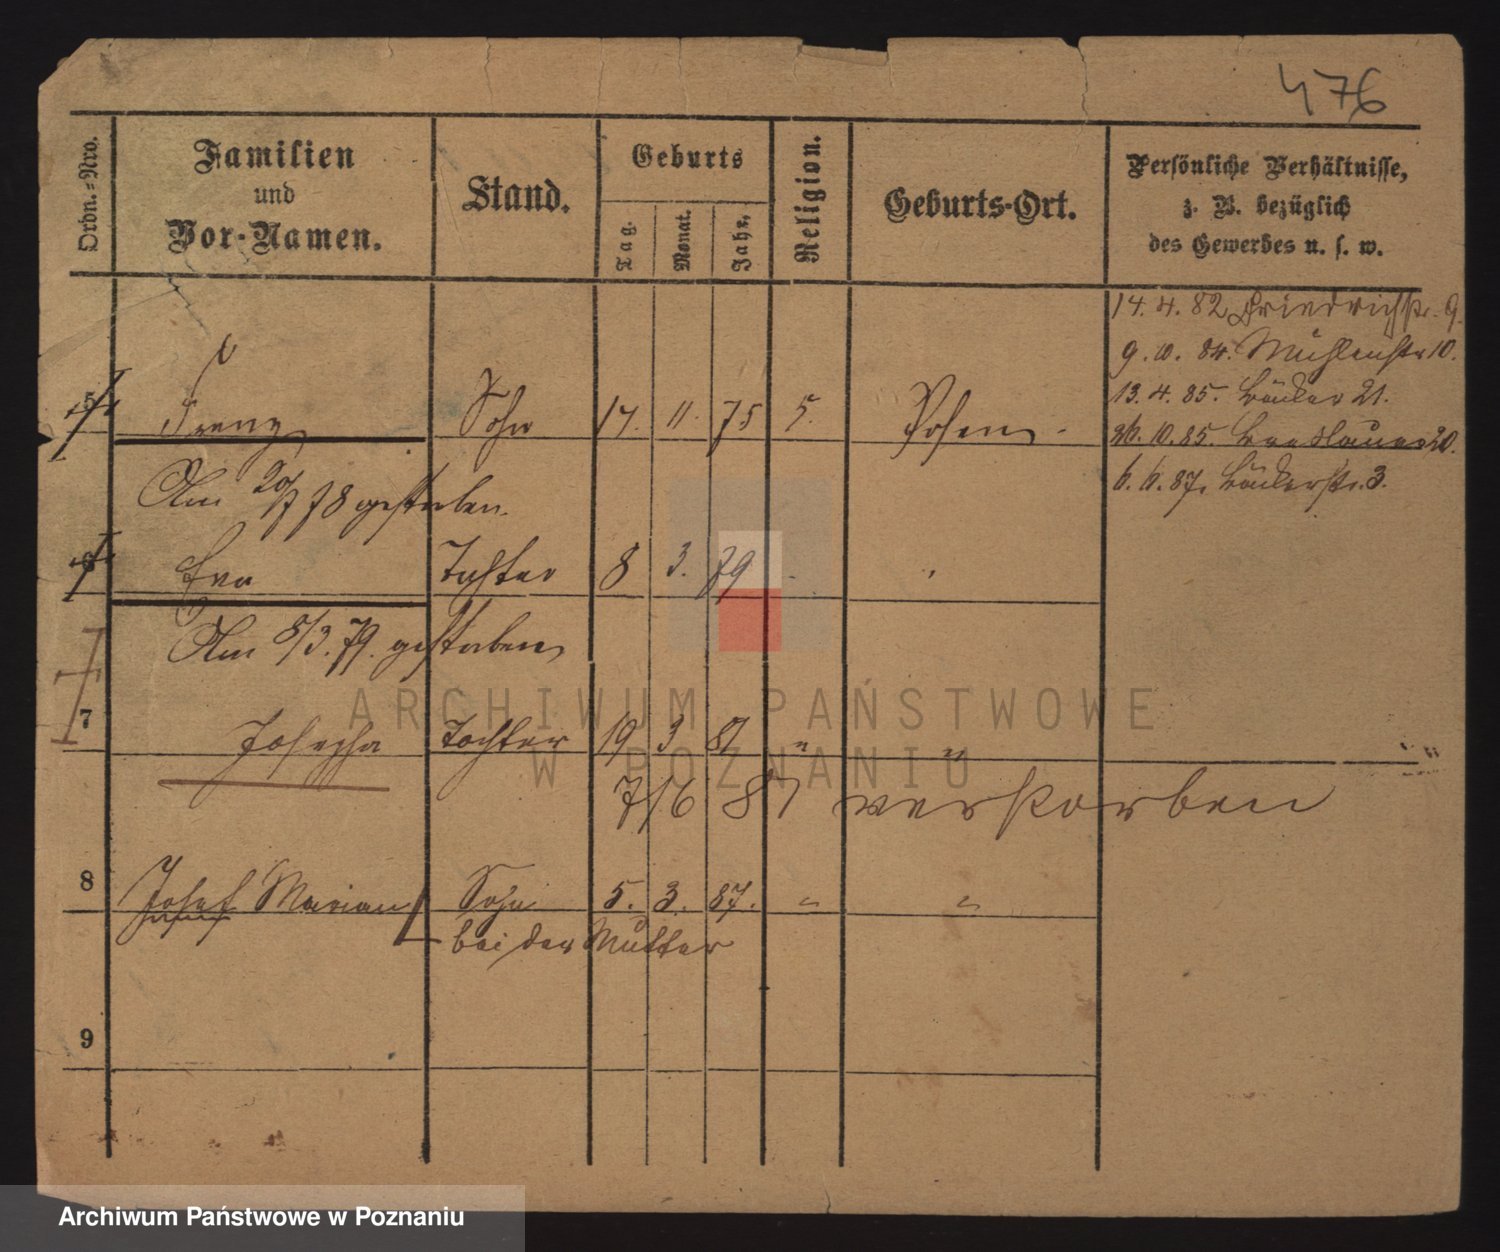 476
Ordn.-Nro.
Familien
und
Vor-Namen.
Stand.
Geburts
Tag.
Monat.
Jahr.
Religion.
Geburts-Ort.
Persönliche Verhältnisse,
z. B. bezüglich
des Gewerbes u. s. w.
14. 4. 82 Friedrichstr. 9.
9. 10. 84. Mühlenstr 10.
13. 4. 85. Bäcker 21.
26. 10. 85. Breslauer 20.
6. 6. 87. Bäckerstr. 3.
5 Franz Sohn 17. 11. 75 Posen
Am 20/7 78 gestorben.
6 Eva Tochter 8 3. 79
Am 8/3. 79. gestorben
7 Josepha Tochter 19 3 81 " "
7/6 81 verstorben
8 Josef Marian Sohn 5. 3. 87. " "
bei der Mutter
9
ARCHIWUM PAŃSTWOWE
W POZNANIU
Archiwum Państwowe w Poznaniu